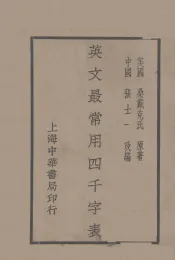 美國 桑戴克氏 原著
中國 張士一 改編
英文最常用四千字表
上海中華書局印行